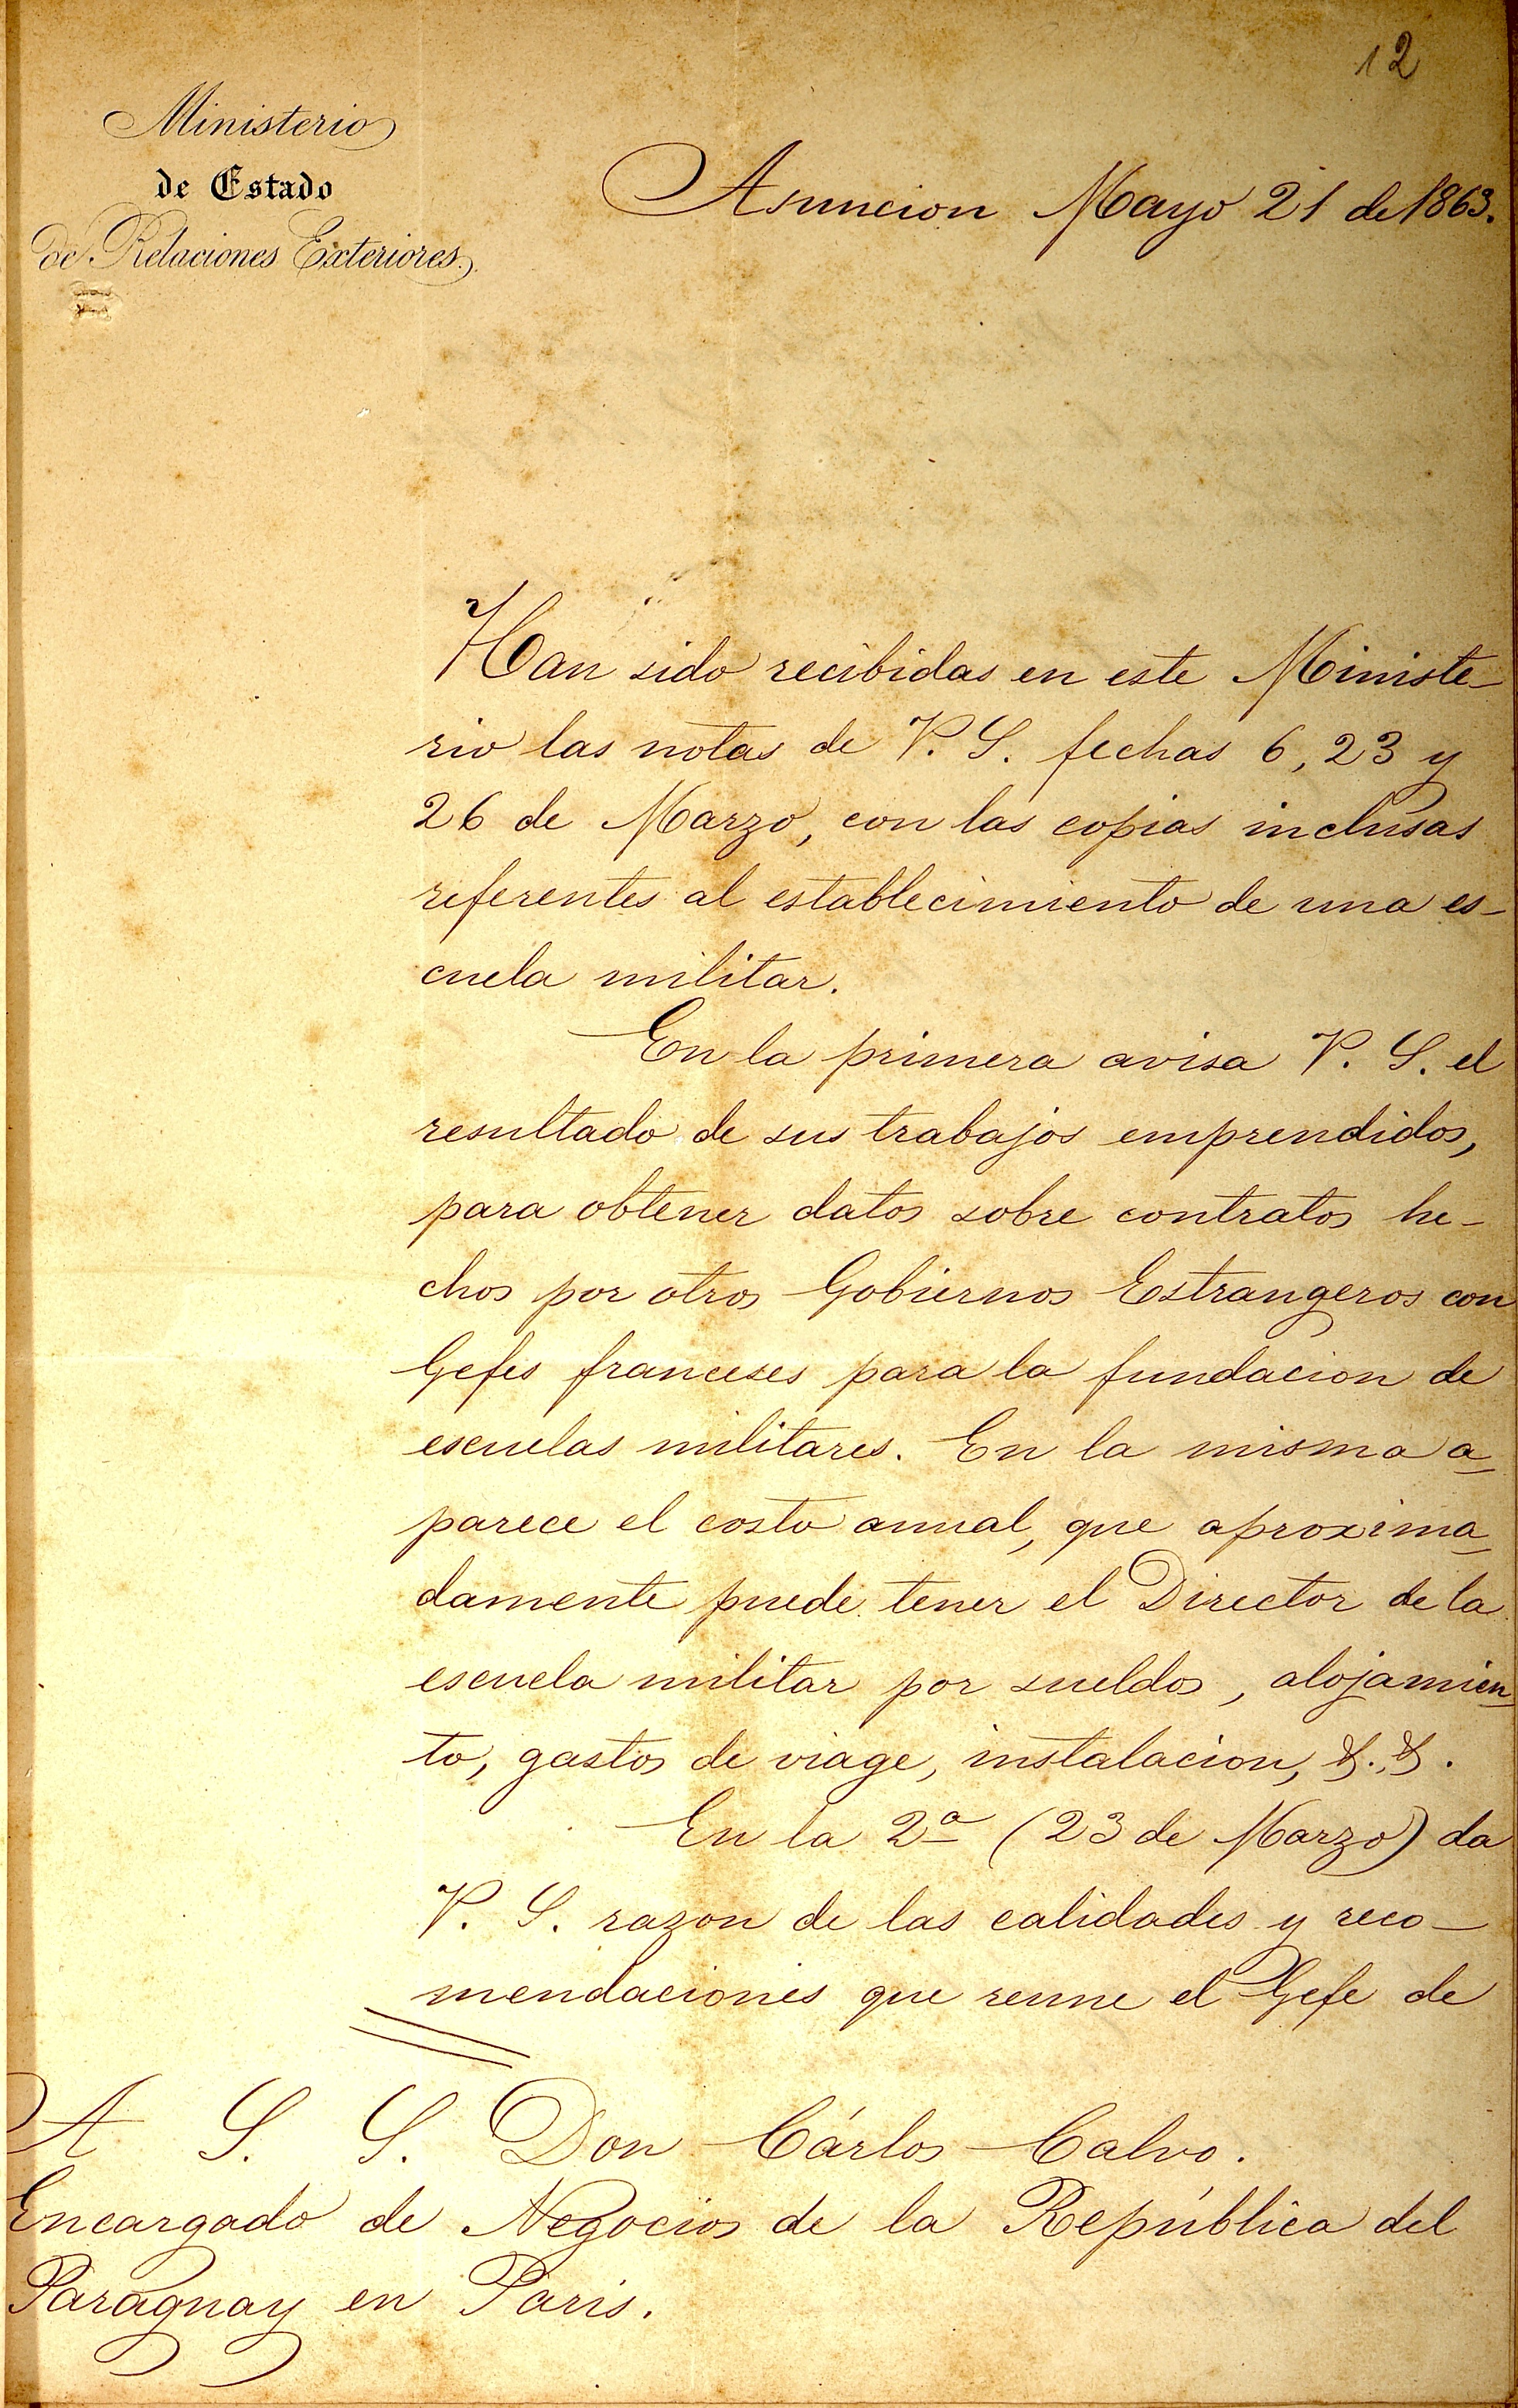 12
Ministerio
de Estado
de Relaciones Exteriores.
Asuncion Mayo 21 de 1863.
Han sido recibidas en este Ministe-
rio las notas de V. S. fechas 6, 23 y
26 de Marzo, con las copias inclusas
referentes al establecimiento de una es-
cuela militar.
En la primera avisa V. S. el
resultado de sus trabajos emprendidos,
para obtener datos sobre contratos he-
chos por otros Gobiernos Estrangeros con
Gefes franceses para la fundacion de
escuelas militares. En la misma a-
parece el costo anual, que aproxima-
damente puede tener el Director de la
escuela militar por sueldos, alojamien-
to, gastos de viage, instalacion, &. &.
En la 2ª (23 de Marzo) da
V. S. razon de las calidades y reco-
mendaciones que reune el Gefe de
A S. S. Don Cárlos Calvo.
Encargado de Negocios de la República del
Paraguay en Paris.